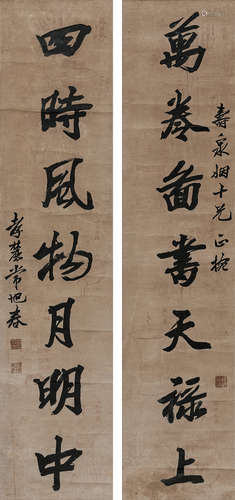 萬卷圖書天祿上
壽泉姻十兄正捥
四時風物月明中
孝麓常地春